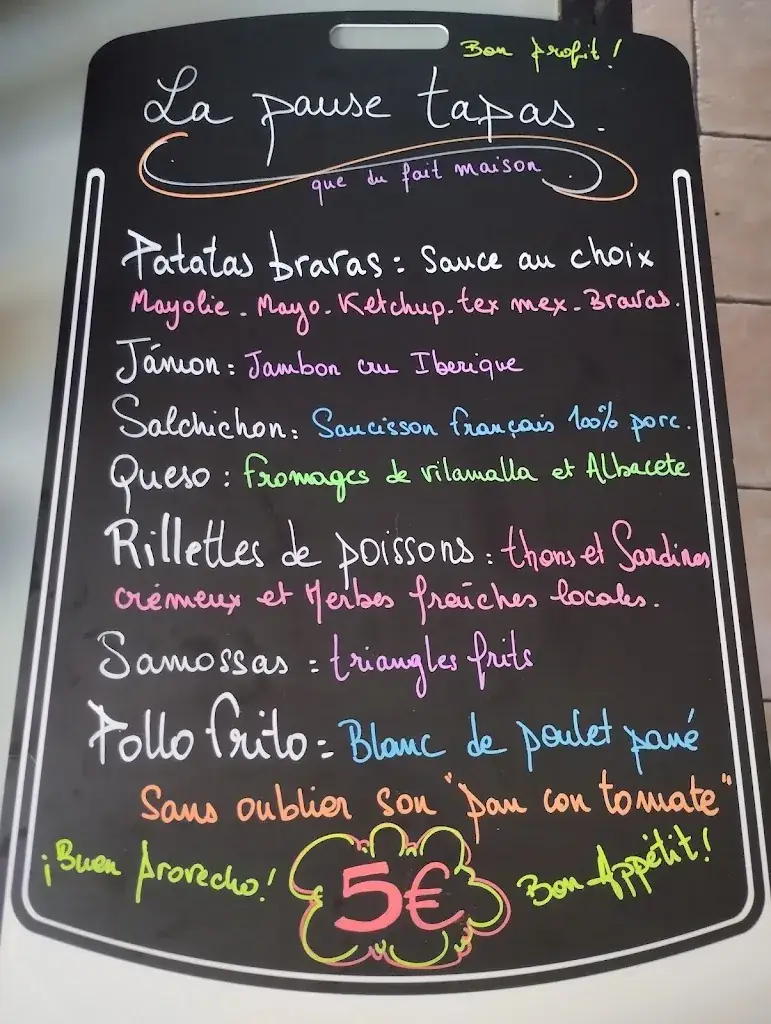 Bon profit !
La pause tapas.
que du fait maison
Patatas bravas : Sauce au choix
Mayolie - Mayo - Ketchup - tex mex - Bravas.
Jámon : Jambon cru Iberique
Salchichon : Saucisson français 100% porc.
Queso : fromages de vilamalla et Albacete
Rillettes de poissons : thons et Sardines
crémeux et Herbes fraîches locales.
Samossas = triangles frits
Pollo frito = Blanc de poulet pané
Sans oublier son "pan con tomate"
¡Buen provecho!
5€
Bon Appétit !